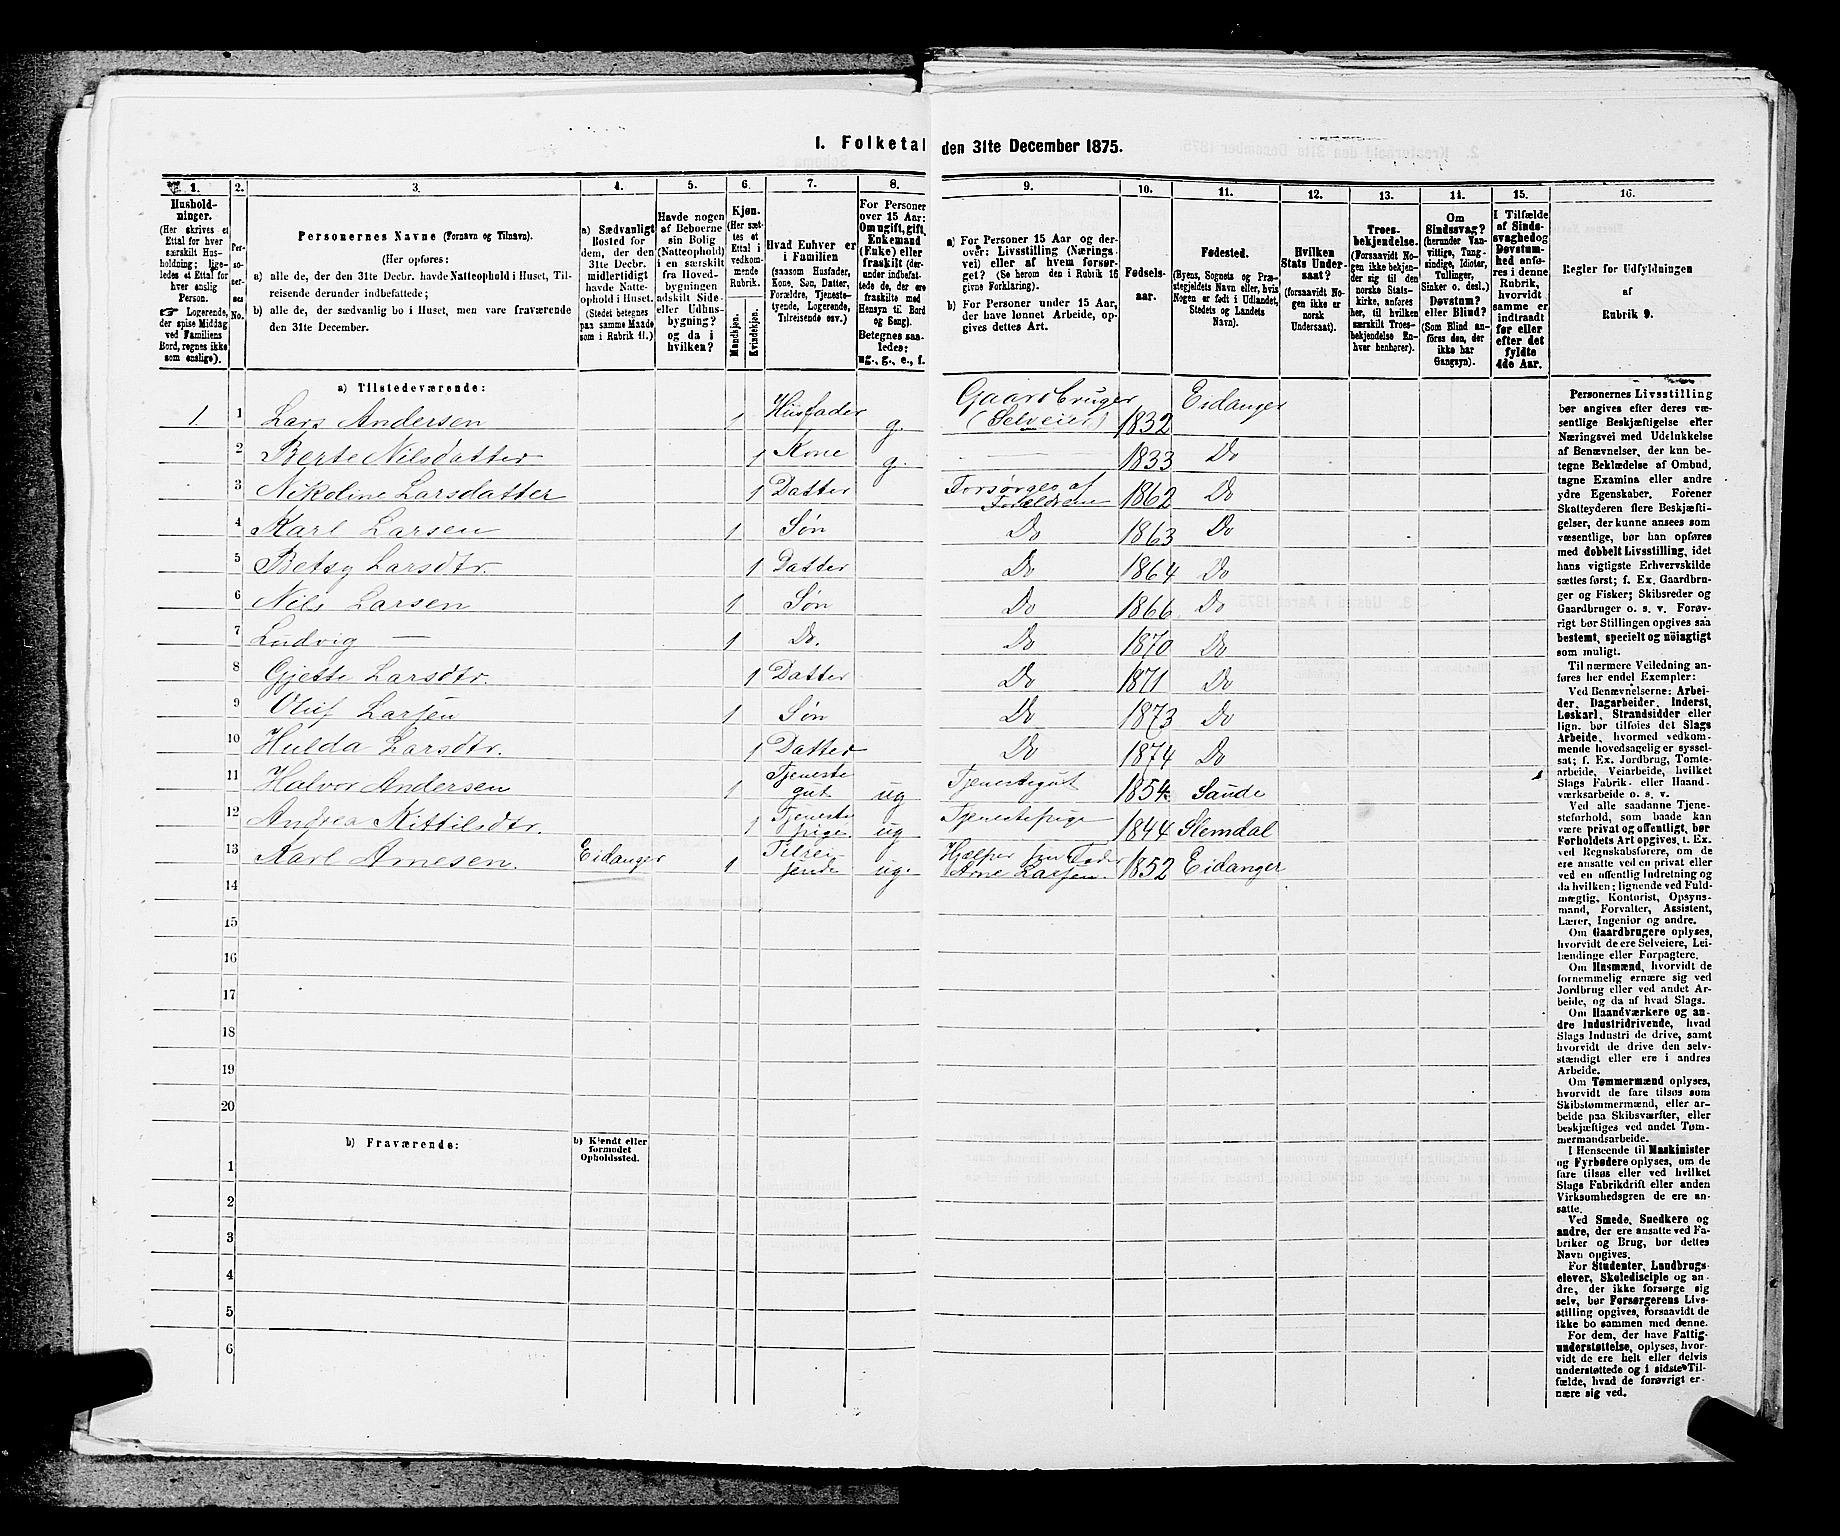 I. Folketal den 31te December 1875.
1. 2. 3. 4. 5. 6. 7. 8. 9. 10. 11. 12. 13. 14. 15. 16.
Hushold-
ninger.
(Her skrives et
Ettal for hver
særskilt Hus-
holdning; lige-
ledes et Ettal for
hver enslig
Person.
☞ Logerende,
der spise Middag
ved Familiens
Bord, regnes ikke
som enslige).
Per-
so-
ner-
nes
No.
Personernes Navne (Fornavn og Tilnavn).
(Her opføres:
a) alle de, der den 31te Decbr. havde Natteophold i Huset, Til-
reisende derunder indbefattede;
b) alle de, der sædvanlig bo i Huset, men vare fraværende
den 31te December.
a) Sædvanligt
Bosted for
dem, der den
31te Decbr.
midlertidigt
havde Natte-
ophold i Huset.
(Stedet betegnes
paa samme Maade
som i Rubrik 11.)
Havde nogen
af Beboerne
sin Bolig
(Natteophold)
i en særskilt
fra Hoved-
bygningen
adskilt Side-
eller Udhus-
bygning?
og da i
hvilken?
Kjøn.
(Her sæt-
tes et
Ettal i
vedkom-
mende
Rubrik.
Mandkjøn.
Kvindekjøn.
Hvad Enhver er
i Familien
(saasom Husfader,
Kone, Søn, Datter,
Forældre, Tjeneste-
tyende, Logerende,
Tilreisende osv.)
For Personer
over 15 Aar:
Om ugift, gift,
Enkemand
(Enke) eller
fraskilt (der-
under indbefat-
tede, der ere
fraskilte med
Hensyn til Bord
og Seng).
Betegnes saa-
ledes:
ug., g., e., f.
a) For Personer 15 Aar og der-
over: Livsstilling (Nærings-
vei) eller af hvem forsør-
get? (Se herom den i Rubrik 16
givne Forklaring).
b) For Personer under 15 Aar,
der have lønnet Arbeide, op-
gives dettes Art.
Fødsels-
aar.
Fødested.
(Byens, Sognets og Præ-
stegjeldets Navn eller, hvis
Nogen er født i Udlandet,
Stedets og Landets
Navn).
Hvilken
Stats Under-
saat?
(forsaavidt No-
gen ikke er
norsk
Undersaat).
Troes-
bekjendelse.
(Forsaavidt No-
gen ikke bekjen-
der sig til den
norske Stats-
kirke, anføres
her, til hvilken
særskilt Troes-
bekjendelse En-
hver henhører).
Om
Sindssvag?
(herunder Van-
vittige, Tung-
sindige, Idioter,
Tullinger,
Sinker o. desl.)
Døvstum?
eller Blind?
(Som Blind an-
føres den, der
ikke har
Gangsyn).
I Tilfælde
af Sinds-
svaghed og
Døvstum-
hed anfø-
res i denne
Rubrik,
hvorvidt
samme er
indtraadt
før eller
efter det
fyldte
4de Aar.
Regler for Udfyldningen
af
Rubrik 9.
a) Tilstedeværende:
1. 1 Lars Andersen 1 Husfader g. Gaardbruger (Selveier) 1832 Eidanger
2 Berte Nilsdatter 1 Kone g. — — 1833 Do
3 Nikoline Larsdatter 1 Datter Forsørges af Forældrene 1862 Do
4 Karl Larsen 1 Søn Do 1863 Do
5 Betsy Larsdtr. 1 Datter Do 1864 Do
6 Nils Larsen 1 Søn Do 1866 Do
7 Ludvig — 1 Do. Do 1870 Do
8 Gjette Larsdtr. 1 Datter Do 1871 Do
9 Oluf Larsen 1 Søn Do 1873 Do
10 Hulda Larsdtr. 1 Datter Do 1874 Do
11 Halvor Andersen 1 Tjeneste gut ug Tjenestegut 1854 Saude
12 Andrea Kittilsdtr. 1 Tjeneste pige ug Tjenestepige 1844 Slemdal
13 Karl Arnesen. Eidanger 1 Tilrei sende ug. Hjælper sin Fader Arne Larsen. 1852 Eidanger
14
15
16
17
18
19
20
b) Fraværende:
b) Kjendt eller
formodet
Opholdssted.
1
2
3
4
5
6
Personernes Livsstilling
bør angives efter deres væ-
sentlige Beskjæftigelse eller
Næringsvei med Udelukkelse
af Benævnelser, der kun be-
tegne Beklædelse af Ombud,
tagne Examina eller andre
ydre Egenskaber. Forener
Skatteyderen flere Beskjæfti-
gelser, der kunne ansees som
væsentlige, bør han opføres
med dobbelt Livsstilling, idet
hans vigtigste Erhvervskilde
sættes først; f. Ex. Gaardbru-
ger og Fisker; Skibsreder og
Gaardbruger o. s. v. Forøv-
rigt bør Stillingen opgives saa
bestemt, specielt og nøiagtigt
som muligt.
Til nærmere Veiledning an-
føres her endel Exempler:
Ved Benævnelserne: Arbei-
der, Dagarbeider, Inderst,
Løskarl, Strandsidder eller
lign. bør tilføies det Slags
Arbeide, hvormed vedkom-
mende hovedsagelig er syssel-
sat; f. Ex. Jordbrug, Tomte-
arbeide, Veiarbeide, hvilket
Slags Fabrik- eller Haand-
værksarbeide o. s. v.
Ved alle saadanne Tjene-
steforhold, som baade kan
være privat og offentligt, bør
Forholdets Art opgives, t. Ex.
ved Regnskabsførere, om de
ere ansatte ved en privat eller
ved en offentlig Indretning og
da hvilken; lignende ved Fuld-
mægtig, Kontorist, Opsyns-
mand, Forvalter, Assistent,
Lærer, Ingeniør og andre.
Om Gaardbrugere oplyses,
hvorvidt de ere Selveiere, Lei-
lændinge eller Forpagtere.
Om Husmænd, hvorvidt de
fornemmelig ernære sig ved
Jordbrug eller ved andet Ar-
beide, og da af hvad Slags.
Om Haandværkere og an-
dre Industridrivende, hvad
Slags Industri de drive, samt
hvorvidt de drive den selv-
stændigt eller ere i andres
Arbeide.
Om Tømmermænd oplyses,
hvorvidt de fare tilsøs som
Skibstømmermænd, eller ar-
beide paa Skibsværfter, eller
beskjæftiges ved andet Tøm-
mermandsarbeide.
I Henseende til Maskinister
og Fyrbødere oplyses, om de
fare tilsøs eller ved hvilket
Slags Fabrikdrift eller anden
Virksomhedsgren de ere an-
satte.
Ved Smede, Snedkere og
andre, der ere ansatte ved Fa-
briker og Brug, bør dettes
Navn opgives.
For Studenter, Landbrugs-
elever, Skoledisciple og an-
dre, der ikke forsørge sig
selv, bør Forsørgerens Livs-
stilling opgives, forsaavidt de
ikke bo sammen med denne.
For dem, der have Fattig-
understøttelse, oplyses, hvor-
vidt de ere helt eller delvis
understøttede og i sidste Til-
fælde, hvad de forøvrigt er-
nære sig ved.